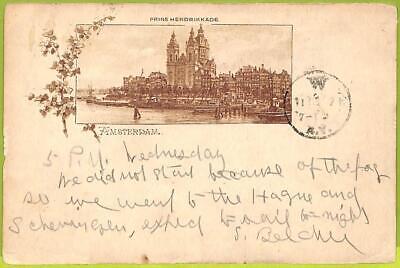 PRINS HENDRIKKADE
AMSTERDAM.
5 P.M. Wednesday
We did not start because of the fog
so we went to the Hague and
expect to sail to-night
S.